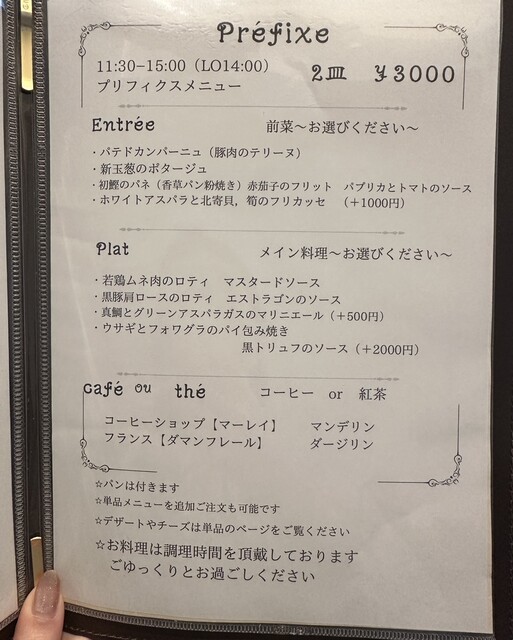 Préfixe
11:30−15:00（LO14:00）
プリフィクスメニュー
2皿 ￥3000
Entrée 前菜〜お選びください〜
・パテドカンパーニュ（豚肉のテリーヌ）
・新玉葱のポタージュ
・初鰹のパネ（香草パン粉焼き）赤茄子のフリット　パプリカとトマトのソース
・ホワイトアスパラと北寄貝，筍のフリカッセ　（＋1000円）
Plat メイン料理〜お選びください〜
・若鶏ムネ肉のロティ　マスタードソース
・黒豚肩ロースのロティ　エストラゴンのソース
・真鯛とグリーンアスパラガスのマリニエール（＋500円）
・ウサギとフォワグラのパイ包み焼き
黒トリュフのソース（＋2000円）
café ou thé コーヒー　or　紅茶
コーヒーショップ【マーレイ】　マンデリン
フランス【ダマンフレール】　ダージリン
☆パンは付きます
☆単品メニューを追加ご注文も可能です
☆デザートやチーズは単品のページをご覧ください
☆お料理は調理時間を頂戴しております
ごゆっくりとお過ごしください